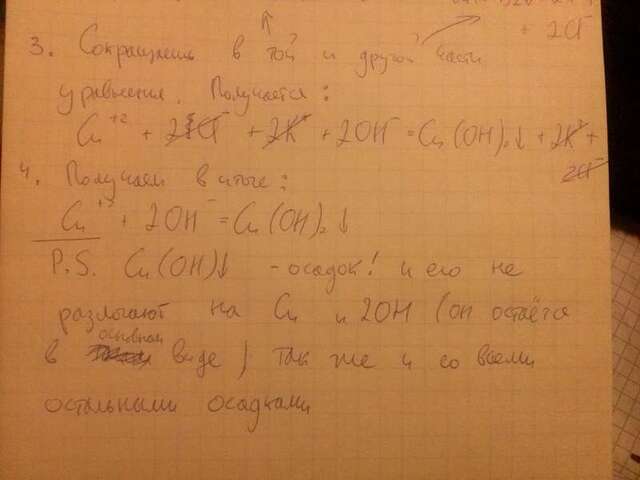 + 2Cl⁻
3. Сокращаешь в той и другой части
уравнения. Получается:
Cu⁺² + 2Cl⁻ + 2K⁺ + 2OH⁻ = Cu(OH)₂↓ + 2K⁺ +
2Cl⁻
4. Получаем в итоге:
Cu⁺² + 2OH⁻ = Cu(OH)₂↓
P.S. Cu(OH)↓ - осадок! и его не
разлагают на Cu и 2OH (он остаётся
в основном виде) так же и со всеми
остальными осадками